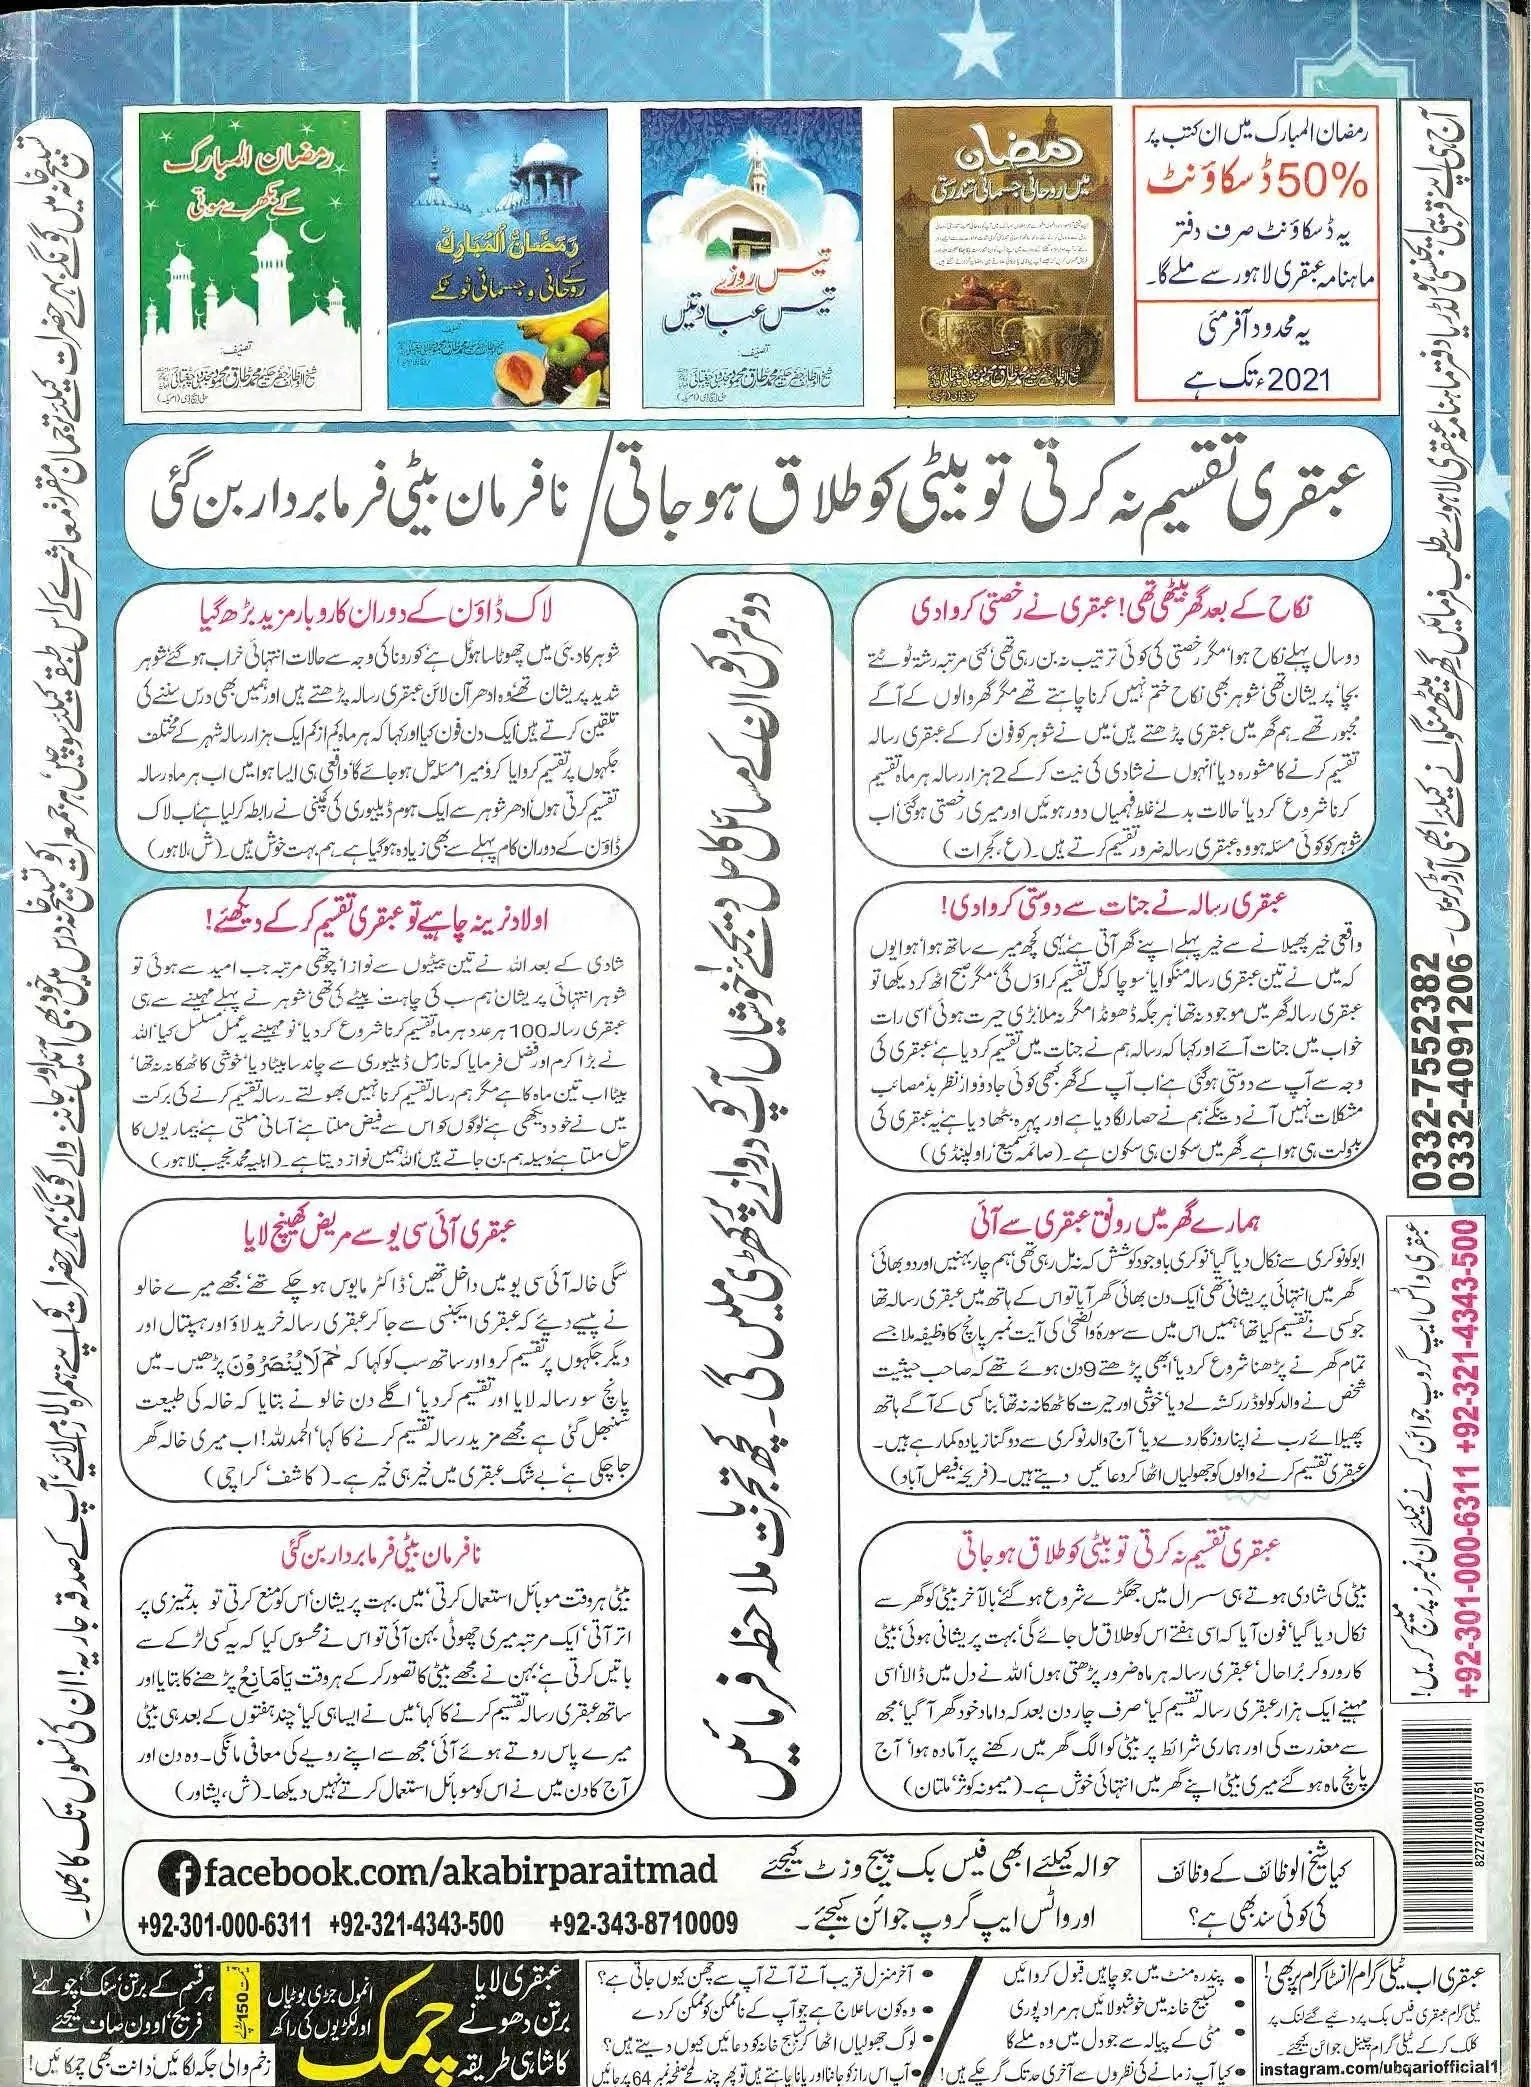 رمضان المبارک میں ان کتب پر
50% ڈسکاؤنٹ
یہ ڈسکاؤنٹ صرف دفتر
ماہنامہ عبقری لاہور سے ملے گا۔
یہ محدود آفر مئی
2021ء تک ہے
رمضان
میں روحانی جسمانی تندرستی
تصنیف
تیس روزے
تیس عبادتیں
تصنیف:
رمضان المبارک
کے روحانی و جسمانی ٹوٹکے
تصنیف
رمضان المبارک
کے بکھرے موتی
تصنیف:
عبقری تقسیم نہ کرتی تو بیٹی کو طلاق ہو جاتی/ نافرمان بیٹی فرمابردار بن گئی
نکاح کے بعد گھر بیٹھی تھی! عبقری نے رخصتی کروا دی
دو سال پہلے نکاح ہوا‘ مگر رخصتی کی کوئی ترتیب نہ بن رہی تھی‘ کئی مرتبہ رشتہ ٹوٹتے
بچا‘ پریشان تھی‘ شوہر بھی نکاح ختم نہیں کرنا چاہتے تھے مگر گھر والوں کے آگے
مجبور تھے۔ ہم گھر میں عبقری پڑھتے ہیں‘ میں نے شوہر کو فون کر کے عبقری رسالہ
تقسیم کرنے کا مشورہ دیا‘ انہوں نے شادی کی نیت کر کے 2 ہزار رسالہ ہر ماہ تقسیم
کرنا شروع کر دیا‘ حالات بدلے‘ غلط فہمیاں دور ہوئیں اور میری رخصتی ہو گئی‘ اب
شوہر کو کوئی مسئلہ ہو وہ عبقری رسالہ ضرور تقسیم کرتے ہیں۔ (ع، گجرات)
عبقری رسالہ نے جنات سے دوستی کروا دی!
واقعی خیر پھیلانے سے خیر پہلے اپنے گھر آتی ہے‘ یہی کچھ میرے ساتھ ہوا‘ ہوا یوں
کہ میں نے تین عبقری رسالہ منگوایا‘ سوچا کہ کل تقسیم کراؤں گی‘ مگر صبح اٹھ کر دیکھا تو
عبقری رسالہ گھر میں موجود نہ تھا‘ ہر جگہ ڈھونڈا مگر نہ ملا‘ بڑی حیرت ہوئی‘ اسی رات
خواب میں جنات آئے اور کہا کہ رسالہ ہم نے جنات میں تقسیم کر دیا ہے‘ عبقری کی
وجہ سے آپ سے دوستی ہو گئی ہے‘ اب آپ کے گھر کبھی کوئی جادو وار نظر بد‘ مصائب
مشکلات نہیں آنے دینگے‘ ہم نے حصار لگا دیا ہے اور پہرہ بٹھا دیا ہے‘ یہ عبقری کی
بدولت ہی ہوا ہے۔ گھر میں سکون ہی سکون ہے۔ (صائمہ سمیع‘ راولپنڈی)
ہمارے گھر میں رونق عبقری سے آئی
ابو کو نوکری سے نکال دیا گیا‘ نوکری باوجود کوشش کہ نہ مل رہی تھی‘ ہم چار بہنیں اور دو بھائی‘
گھر میں انتہائی پریشانی تھی‘ ایک دن بھائی گھر آیا تو اس کے ہاتھ میں عبقری رسالہ تھا
جو کسی نے تقسیم کیا تھا‘ ہمیں اس میں سے سورۂ والضحیٰ کی آیت نمبر پانچ کا وظیفہ ملا جسے
تمام گھر نے پڑھنا شروع کر دیا‘ ابھی پڑھتے 9 دن ہوئے تھے کہ صاحب حیثیت
شخص نے والد کو لوڈر رکشہ لے دیا‘ خوشی اور حیرت کا ٹھکانہ نہ تھا‘ بنا کسی کے آگے ہاتھ
پھیلائے رب نے اپنا روزگار دے دیا‘ آج والد نوکری سے دو گنا زیادہ کما رہے ہیں۔
عبقری تقسیم کرنے والوں کو جھولیاں اٹھا کر دعائیں دیتے ہیں۔ (فریحہ‘ فیصل آباد)
عبقری تقسیم نہ کرتی تو بیٹی کو طلاق ہو جاتی
بیٹی کی شادی ہوتے ہی سسرال میں جھگڑے شروع ہو گئے‘ بالآخر بیٹی کو گھر سے
نکال دیا گیا‘ فون آیا کہ اسی ہفتے اس کو طلاق مل جائے گی‘ بہت پریشانی ہوئی‘ بیٹی
کا رو رو کر برا حال‘ عبقری رسالہ ہر ماہ ضرور پڑھتی ہوں‘ اللہ نے دل میں ڈالا‘ اسی
مہینے ایک ہزار عبقری رسالہ تقسیم کیا‘ صرف چار دن بعد کہ داماد خود گھر آ گیا‘ مجھ
سے معذرت کی اور ہماری شرائط پر بیٹی کو الگ گھر میں رکھنے پر آمادہ ہوا‘ آج
پانچ ماہ ہو گئے میری بیٹی اپنے گھر میں انتہائی خوش ہے۔ (میمونہ کوثر‘ ملتان)
دوسروں کو ان کے مسائل کا حل دیجئے‘ خوشیاں آپ کو دروازے پر کھڑی ملیں گی۔ کچھ تجربات ملاحظہ فرمائیں
لاک ڈاؤن کے دوران کاروبار مزید بڑھ گیا
شوہر کا دبئی میں چھوٹا سا ہوٹل ہے‘ کورونا کی وجہ سے حالات انتہائی خراب ہو گئے‘ شوہر
شدید پریشان تھے‘ وہ ادھر آن لائن عبقری رسالہ پڑھتے ہیں اور ہمیں بھی درس سننے کی
تلقین کرتے ہیں‘ ایک دن فون کیا اور کہا کہ ہر ماہ کم از کم ایک ہزار رسالہ شہر کے مختلف
جگہوں پر تقسیم کروایا کرو‘ میرا مسئلہ حل ہو جائے گا‘ واقعی ہی ایسا ہوا میں اب ہر ماہ رسالہ
تقسیم کرتی ہوں‘ ادھر شوہر سے ایک ہوم ڈیلیوری کی کمپنی نے رابطہ کر لیا ہے‘ اب لاک
ڈاؤن کے دوران کام پہلے سے بھی زیادہ ہو گیا ہے۔ ہم بہت خوش ہیں۔ (ش، لاہور)
اولاد نرینہ چاہیے تو عبقری تقسیم کر کے دیکھئے!
شادی کے بعد اللہ نے تین بیٹیوں سے نوازا‘ چوتھی مرتبہ جب امید سے ہوئی تو
شوہر انتہائی پریشان‘ ہم سب کی چاہت بیٹے کی تھی‘ شوہر نے پہلے مہینے سے ہی
عبقری رسالہ 100 ہر عدد ہر ماہ تقسیم کرنا شروع کر دیا‘ نو مہینے یہ عمل مسلسل کیا‘ اللہ
نے بڑا کرم اور فضل فرمایا کہ نارمل ڈیلیوری سے چاند سا بیٹا دیا‘ خوشی کا ٹھکانہ نہ تھا‘
بیٹا اب تین ماہ کا ہے مگر ہم رسالہ تقسیم کرنا نہیں بھولتے۔ رسالہ تقسیم کرنے کی برکت
میں نے خود دیکھی ہے‘ لوگوں کو اس سے فیض ملتا ہے‘ آسانی ملتی ہے‘ بیماریوں کا
حل ملتا ہے‘ وسیلہ ہم بن جاتے ہیں‘ اللہ ہمیں نواز دیتا ہے۔ (اہلیہ محمد نجیب‘ لاہور)
عبقری آئی سی یو سے مریض کھینچ لایا
سگی خالہ آئی سی یو میں داخل تھیں‘ ڈاکٹر مایوس ہو چکے تھے‘ مجھے میرے خالو
نے پیسے دیئے کہ عبقری ایجنسی سے جا کر عبقری رسالہ خرید لاؤ اور ہسپتال اور
دیگر جگہوں پر تقسیم کرو اور ساتھ سب کو کہا کہ حٰمٓ لَا یُنْصَرُوْنَ پڑھیں۔ میں
پانچ سو رسالہ لایا اور تقسیم کر دیا‘ اگلے دن خالو نے بتایا کہ خالہ کی طبیعت
سنبھل گئی ہے مجھے مزید رسالہ تقسیم کرنے کا کہا‘ الحمدللہ! اب میری خالہ گھر
جا چکی ہے‘ بے شک عبقری میں خیر ہی خیر ہے۔ (کاشف‘ کراچی)
نافرمان بیٹی فرمابردار بن گئی
بیٹی ہر وقت موبائل استعمال کرتی‘ میں بہت پریشان‘ اس کو منع کرتی تو بدتمیزی پر
اتر آتی‘ ایک مرتبہ میری چھوٹی بہن آئی تو اس نے محسوس کیا کہ یہ کسی لڑکے سے
باتیں کرتی ہے‘ بہن نے مجھے بیٹی کا تصور کر کے ہر وقت یَامَانِعُ پڑھنے کا بتایا اور
ساتھ عبقری رسالہ تقسیم کرنے کا کہا‘ میں نے ایسا ہی کیا‘ چند ہفتوں کے بعد ہی بیٹی
میرے پاس روتے ہوئے آئی‘ مجھ سے اپنے رویے کی معافی مانگی۔ وہ دن اور
آج کا دن میں نے اس کو موبائل استعمال کرتے نہیں دیکھا۔ (ش، پشاور)
آج ہی اپنے قریبی ایجنسی ہولڈر یا دفتر ماہنامہ عبقری لاہور سے طلب فرمائیں گھر بیٹھے منگوانے کیلئے ابھی آرڈر کریں۔
0332-7552382
0332-4091206
عبقری واٹس ایپ گروپ جوائن کرنے کیلئے ان نمبرز پر میسج کریں!
+92-301-000-6311 +92-321-4343-500
8272740000751
تسبیح خانہ میں گونگے بہرے حضرات کیلئے ترجمان مقرر‘ معاشرے کے اس طبقے کیلئے سوچیں‘ ہر جمعرات
کو تسبیح خانہ درس میں خود بھی آئیں اور جاننے والے گونگے بہرے حضرات کو اپنے ہمراہ لازمی لائیے‘ آپ کے صدقہ جاریہ! ان کی نسلوں تک کا بھلا۔
کیا شیخ الوظائف کے وظائف
کی کوئی سند بھی ہے؟
حوالہ کیلئے ابھی فیس بک پیج وزٹ کیجئے
facebook.com/akabirparaitmad
اور واٹس ایپ گروپ جوائن کیجئے۔
+92-343-8710009
+92-321-4343-500
+92-301-000-6311
عبقری اب ٹیلی گرام/ انسٹا گرام پر بھی!
ٹیلی گرام عبقری فیس بک پر دیے گئے لنک پر
کلک کر کے ٹیلی گرام چینل جوائن کیجئے۔
instagram.com/ubqariofficial1
• پندرہ منٹ میں جو چاہیں قبول کروائیں
• تسبیح خانہ میں خوشبو لائیں ہر مراد پوری
• مٹی کے پیالہ سے جو دل میں وہ ملے گا
• کیا آپ زمانے کی نظروں سے آخری حد تک گر چکے ہیں!
• آخر منزل قریب آتے آتے آپ سے چھن کیوں جاتی ہے؟
• وہ کون سا علاج ہے جو آپ کے ناممکن کو ممکن کر دے
• لوگ جھولیاں اٹھا کر تسبیح خانہ کو دعائیں کیوں دیتے ہیں؟
• آپ اس راز کو جاننا اور پانا چاہتے ہیں تو پھر چند لمحے صفحہ نمبر 64 پر جائیں
عبقری لایا
برتن دھونے
کا شاہی طریقہ
چمک
انمول جڑی بوٹیاں
اور لکڑیوں کی راکھ
قیمت 150 روپے
ہر قسم کے برتن‘ سنک‘ چولہے
فریج‘ اوون صاف کیجئے
زخم والی جگہ لگائیں‘ دانت بھی چمکائیں!